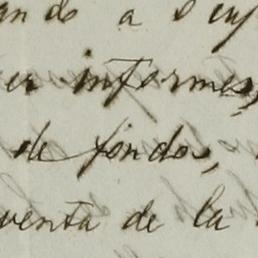 ando a
er informes,
de fondos,
venta de la